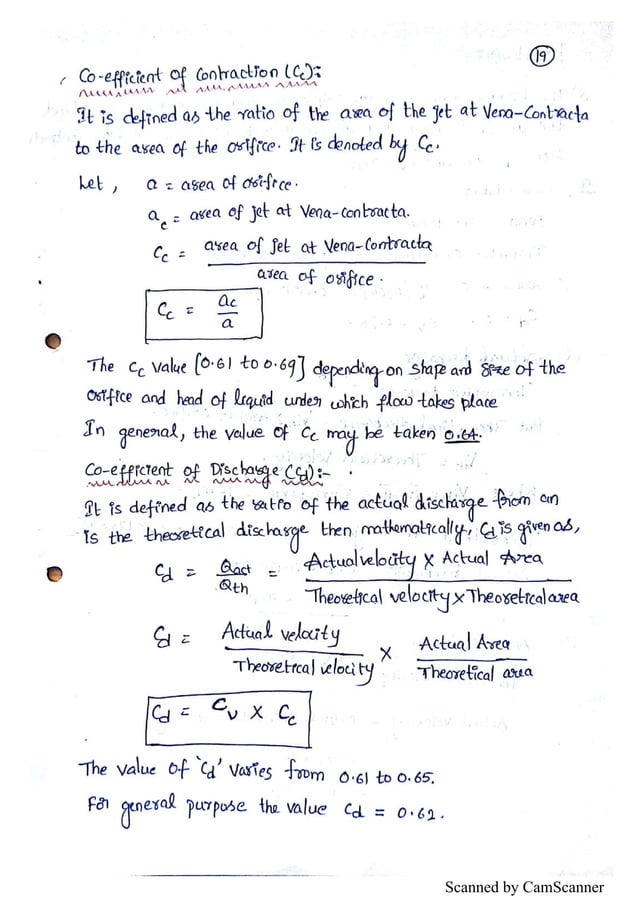 19
Co-efficient of Contraction (Cc):
It is defined as the ratio of the area of the jet at Vena-Contracta
to the area of the orifice. It is denoted by Cc.
Let, a = area of orifice.
ac = area of jet at Vena-contracta.
Cc = area of jet at Vena-Contracta
area of orifice.
Cc = ac
a
The Cc Value [0.61 to 0.69] depending on shape and size of the
orifice and head of liquid under which flow takes place
In general, the value of Cc may be taken 0.64.
Co-efficient of Discharge (Cd):-
It is defined as the ratio of the actual discharge from an
is the theoretical discharge then mathematically, Cd is given as,
Cd = Qact = Actual velocity X Actual Area
Qth Theoretical velocity x Theoretical area
Cd = Actual velocity X Actual Area
Theoretical velocity Theoretical area
Cd = Cv X Cc
The value of 'Cd' varies from 0.61 to 0.65.
For general purpose the value Cd = 0.62.
Scanned by CamScanner